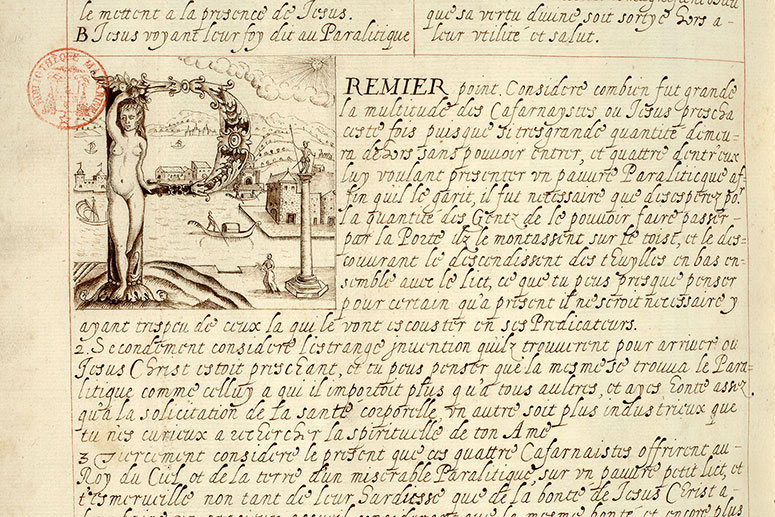 le mettent a la presence de Jesus.
B Jesus voyant leur foy dit au Paralitique
que sa vertu divine soit sortye hors a
leur utilité et salut.
BIBLIOTHEQUE MAZARINE
PREMIER point. Considere combien fut grande
la multitude des Cafarnaystes ou Jesus prescha
ceste fois puisque si tresgrande quantité demeu-
ra dehors sans pouvoir entrer, et quattre d'entr'eux
luy voulant presenter un pauvre Paraliticque af-
fin quil le garit, il fut necessaire que desesperez por
la quantité des Gentz de le pouvoir faire passer
par la Porte ilz le montassent sur le toist, et le des-
couvrant le descendissent des thuylles en bas en-
semble avec le lict, ce que tu peus presque penser
pour certain qu'a present il ne seroit necessaire y
ayant trespeu de ceux la qui le vont escouster en ses Predicateurs.
2. Secondement considere l'estrange invention quilz trouverent pour arriver ou
Jesus Christ estoit preschant, et tu peus penser que la mesme se trouva le Para-
litique comme celluy a qui il importoit plus qu'a tous aultres, et ayes honte assez
qu'a la solicitation de la santé corporelle un autre soit plus industrieux que
tu n'es curieux a rechercher la spirituelle de ton Ame
3 Tiercement considere le present que ces quattre Cafarnaistes offrirent au
Roy du Ciel, et de la terre d'un miserable Paralitique, sur un pauvre petit lict, et
t'esmerveille non tant de leur hardiesse que de la bonté de Jesus Christ a
la mesme bonté, et encore plus